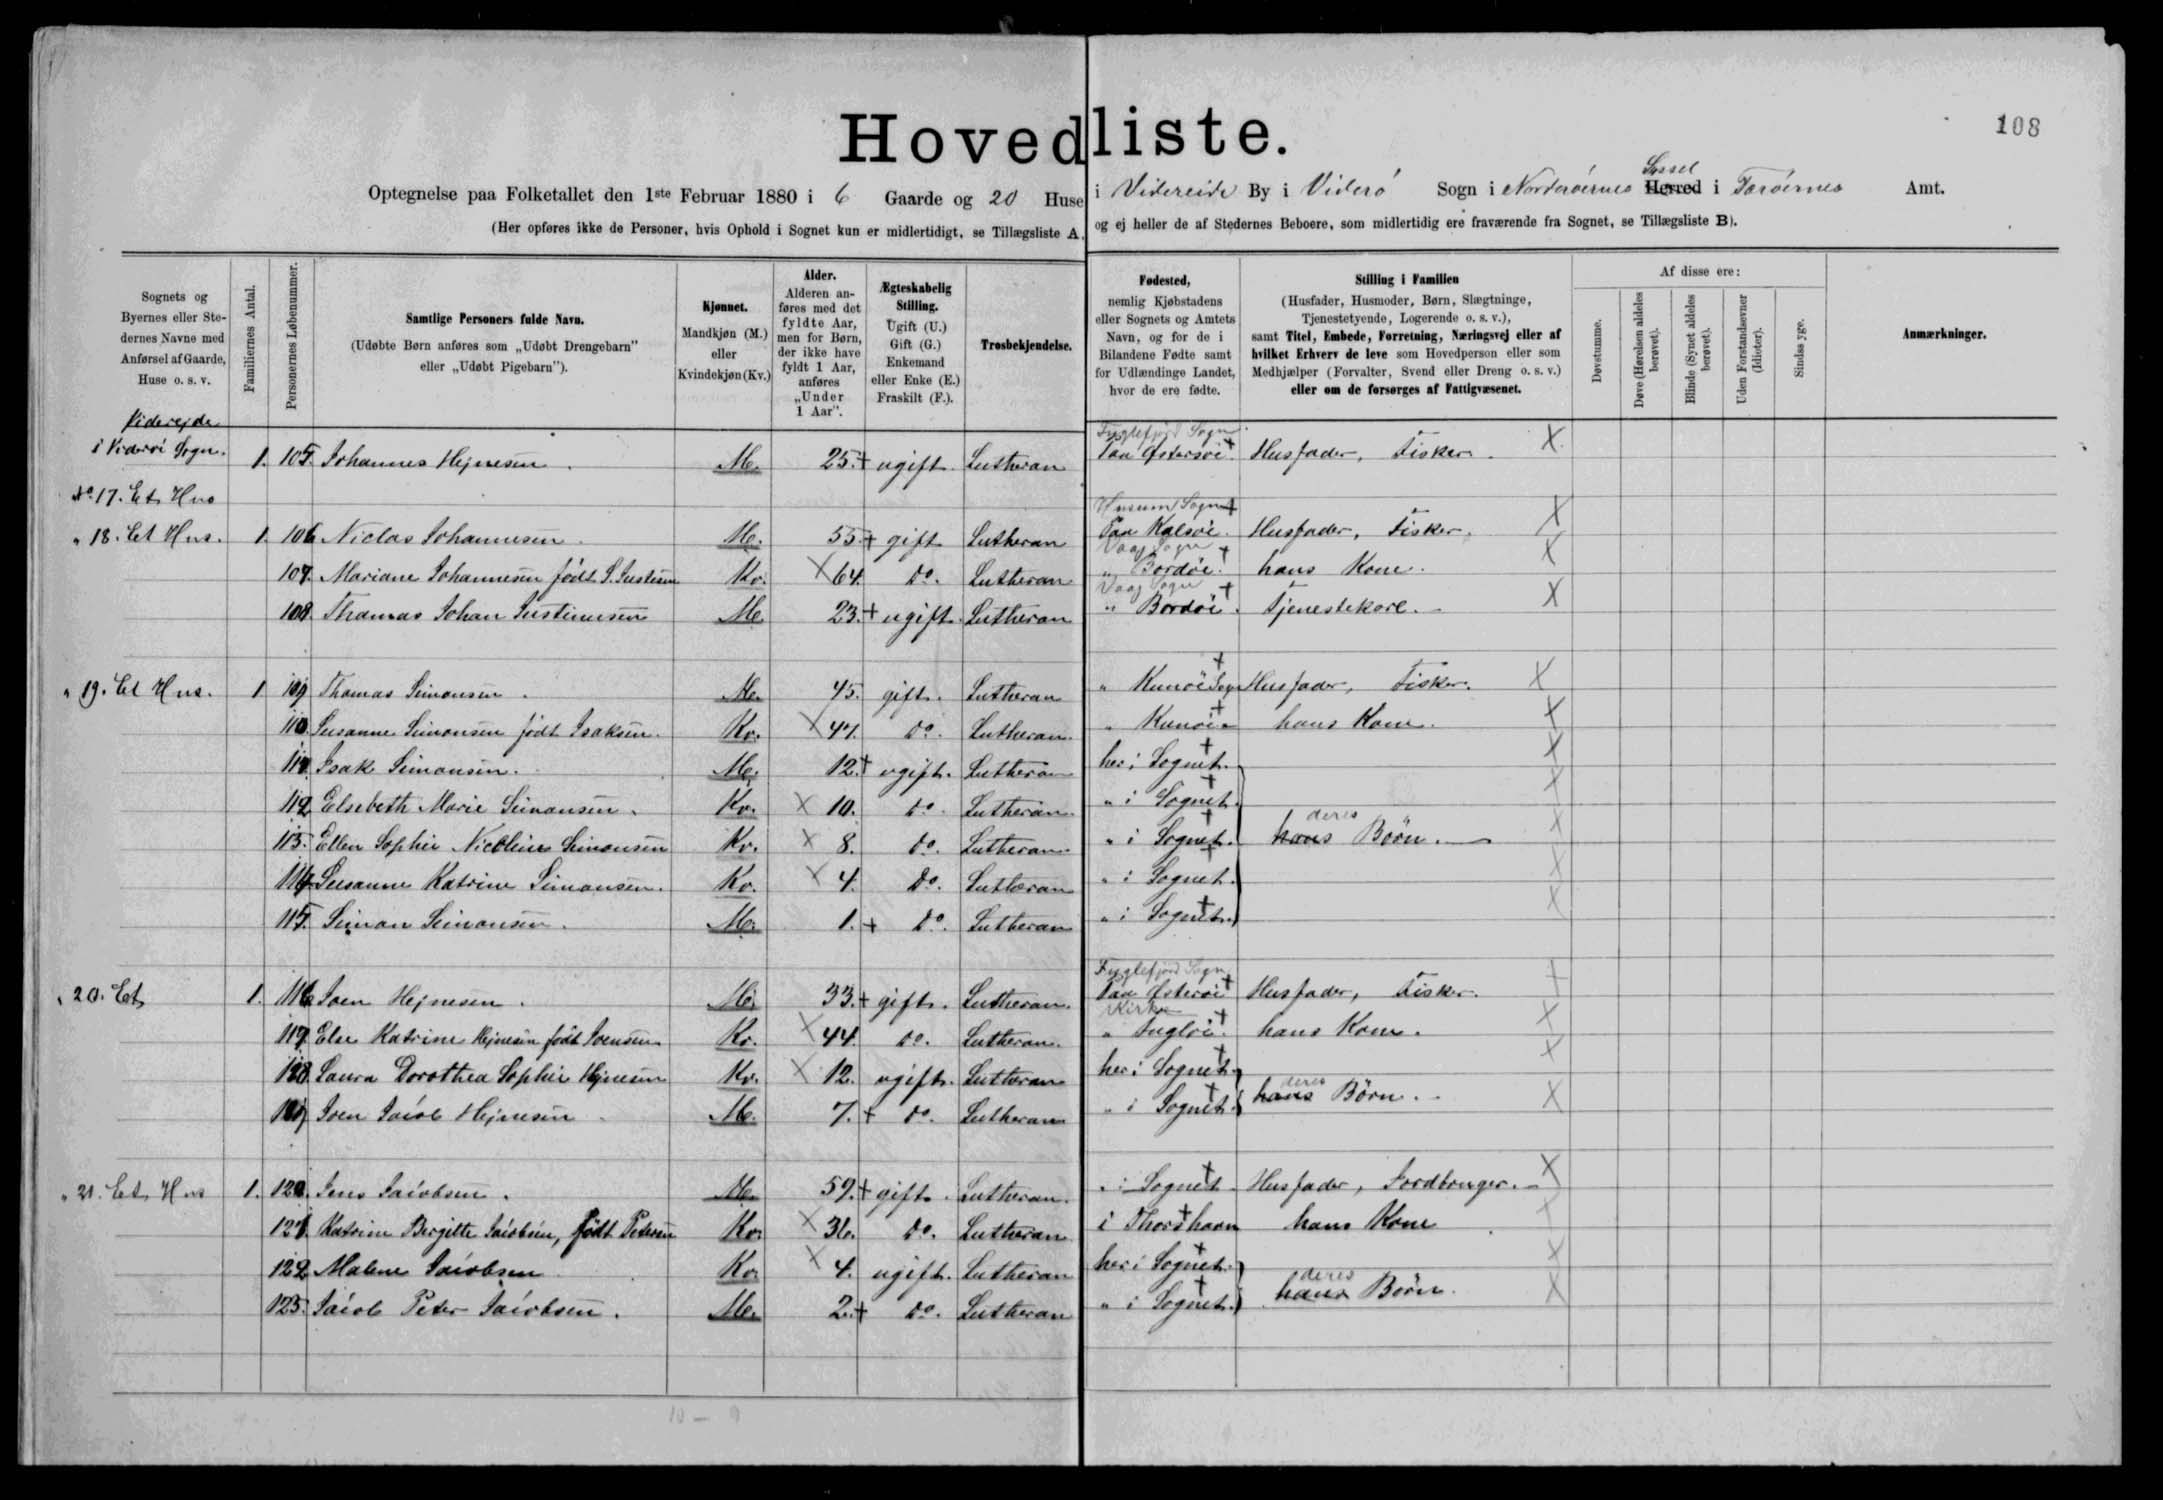 Hovedliste.
108
Syssel
Optegnelse paa Folketallet den 1ste Februar 1880 i 6 Gaarde og 20 Huse i Videreide By i Viderö Sogn i Norderöernes Herred i Færöernes Amt.
(Her opføres ikke de Personer, hvis Ophold i Sognet kun er midlertidigt, se Tillægsliste A, og ej heller de af Stedernes Beboere, som midlertidig ere fraværende fra Sognet, se Tillægsliste B).
Sognets og Byernes eller Stedernes Navne med Anførsel af Gaarde, Huse o. s. v.
Familiernes Antal.
Personernes Løbenummer.
Samtlige Personers fulde Navn.
(Udøbte Børn anføres som „Udøbt Drengebarn" eller „Udøbt Pigebarn").
Kjønnet.
Mandkjøn (M.) eller Kvindekjøn (Kv.)
Alder.
Alderen anføres med det fyldte Aar, men for Børn, der ikke have fyldt 1 Aar, anføres „Under 1 Aar".
Ægteskabelig Stilling.
Ugift (U.) Gift (G.) Enkemand eller Enke (E.) Fraskilt (F.).
Trosbekjendelse.
Fødested,
nemlig Kjøbstadens eller Sognets og Amtets Navn, og for de i Bilandene Fødte samt for Udlændinge Landet, hvor de ere fødte.
Stilling i Familien
(Husfader, Husmoder, Børn, Slægtninge, Tjenestetyende, Logerende o. s. v.),
samt Titel, Embede, Forretning, Næringsvej eller af hvilket Erhverv de leve som Hovedperson eller som Medhjælper (Forvalter, Svend eller Dreng o. s. v.) eller om de forsørges af Fattigvæsenet.
Af disse ere:
Døvstumme.
Døve (Hørelsen aldeles berøvet).
Blinde (Synet aldeles berøvet).
Uden Forstandsevner (Idioter).
Sindssyge.
Anmærkninger.
Viderejde
Fuglefjord Sogn
i Viderøi Sogn. 1. 105. Johannes Hejnesen. M. 25. + ugift. Lutheran Paa Østerøi + Husfader, Fisker. X
No. 17. Et Hus
Husum Sogn +
" 18. Et Hus. 1. 106 Niclas Johannesen. M. 55. + gift Lutheran Paa Kalsøi. Husfader, Fisker. X
Vaag Sogn
107. Mariane Johannesen født J. Justesen Kv. X 64. do. Lutheran " Bordøi. + hans Kone. X
Vaag Sogn
108. Thomas Johan Justinussen M. 23. + ugift. Lutheran " Bordøi. + Tjenestekarl. X
" 19. Et Hus. 1 109 Thomas Simonsen. M. 45. gift. Lutheran " Kunøi Sogn + Husfader, Fisker. X
110. Susanne Simonsen født Isaksen. Kv. X 47. do. Lutheran. " Kunøi + hans Kone. X
111. Isak Simonsen. M. 12. + ugift. Lutheran her i Sognet. + X
112 Elsebeth Marie Simonsen. Kv. X 10. do. Lutheran. " i Sognet. + X
deres
113. Ellen Sophie Nicoline Simonsen Kv. X 8. do. Lutheran. " i Sognet. + hans Børn. X
114 Susanne Katrine Simonsen. Kv. X 4. do. Lutheran " i Sognet. + X
115. Simon Simonsen. M. 1. + do. Lutheran " i Sognet. + X
Fuglefjord Sogn
" 20. Et 1. 116 Joen Hejnesen. M. 33. + gift. Lutheran. Paa Østerøi + Husfader, Fisker. +
Kirke
117. Else Katrine Hejnesen født Joensen Kv. X 44. do. Lutheran. " Fugløi. + hans Kone. X
118. Laura Dorothea Sophie Hejnesen Kv. X 12. ugift. Lutheran her i Sognet. + X
deres
119 Joen Jacob Hejnesen M. 7. + do. Lutheran " i Sognet. + hans Børn. X
" 21. Et Hus 1. 120. Jens Jacobsen. M. 59. + gift. Lutheran. " i Sognet. + Husfader, Jordbruger. X
121. Katrine Bergitte Jacobsen, født Petersen Kv. X 36. do. Lutheran i Thorshavn + hans Kone X
122 Malene Jacobsen Kv. X 4. ugift. Lutheran her i Sognet. + X
deres
123. Jacob Peter Jacobsen. M. 2. + do. Lutheran " i Sognet. + hans Børn. X
10 — 9